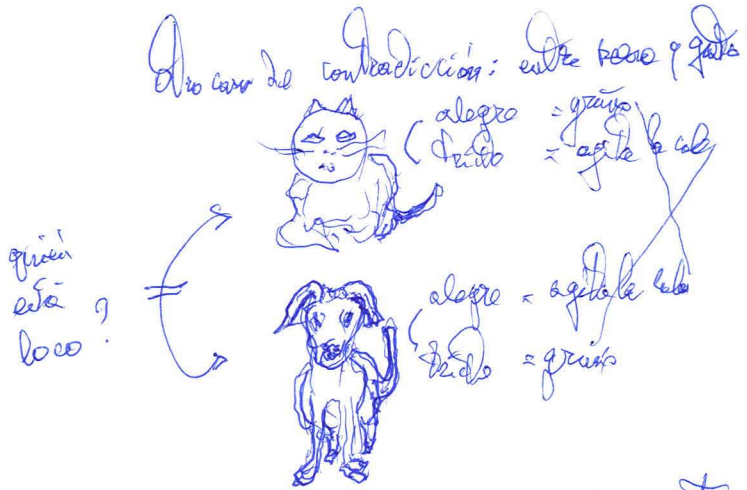 Otro caso de contradicción: entre perro y gato
alegre = gruñe
triste = agita la cola
quién
está
loco?
alegre = agita la cola
triste = gruñe